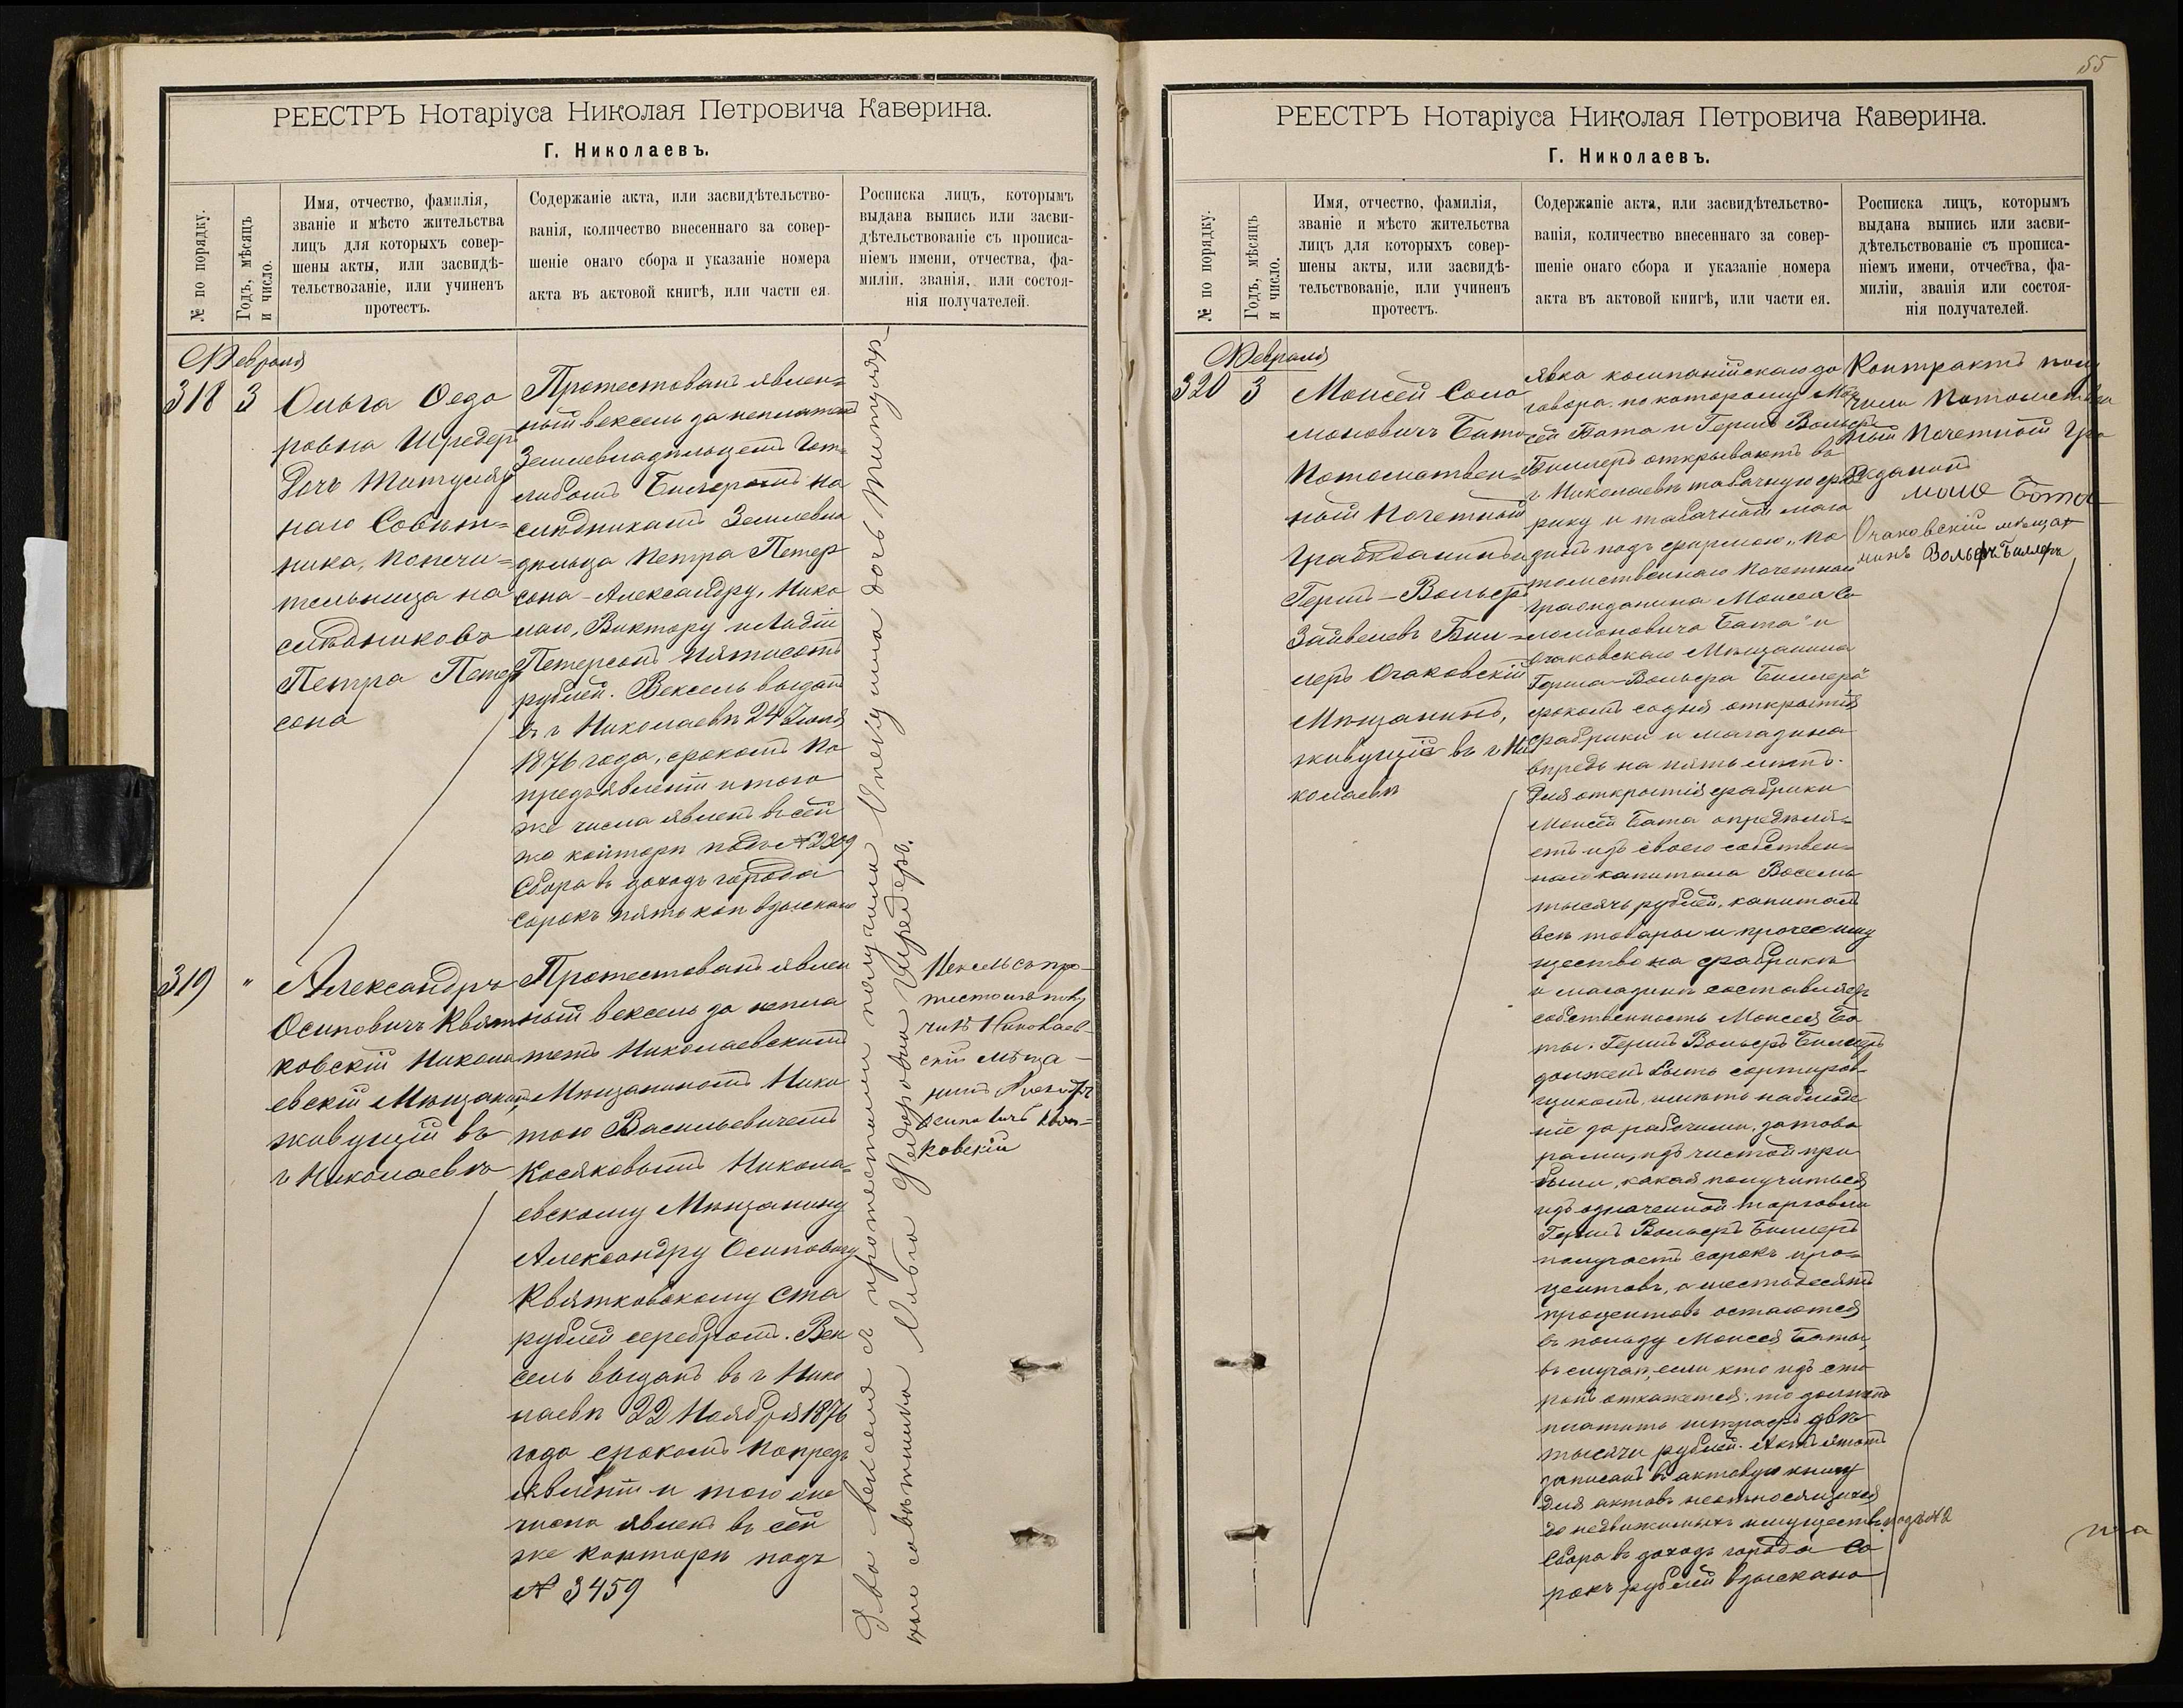 РЕЕСТРЪ Нотаріуса Николая Петровича Каверина.
Г. Николаевъ.
№ по порядку.
Годъ, мѣсяцъ
и число.
Имя, отчество, фамилія,
званіе и мѣсто жительства
лицъ для которыхъ совер-
шены акты, или засвидѣ-
тельствованіе, или учиненъ
протестъ.
Содержаніе акта, или засвидѣтельство-
ванія, количество внесеннаго за совер-
шеніе онаго сбора и указаніе номера
акта въ актовой книгѣ, или части ея.
Росписка лицъ, которымъ
выдана выпись или засви-
дѣтельствованіе съ прописа-
ніемъ имени, отчества, фа-
миліи, званія, или состоя-
нія получателей.
Февраля
318 3
Ольга Ѳедо
ровна Шредеръ
Дочь Титуляр
наго Совѣт=
ника, попечи=
тельница на
слѣдниковъ
Петра Петер
сона
Протестованъ явлен=
ный вексель за неплатежъ
Землевладѣльцемъ Гот=
либомъ Биллеромъ на
слѣдникамъ Землевла
дѣльца Петра Петер
сона - Александру, Нико
лаю, Виктору и Лидіи
Петерсонъ пятисотъ
рублей. Вексель выданъ
въ г Николаевѣ 24 Іюля
1876 года, срокомъ по
предъявленіи и того
же числа явленъ въ сей
же конторѣ подъ № 2309
Сбора въ доходъ города
сорокъ пять коп взыскано
Два векселя съ протестами получила Опекунша дочь Титуляр
наго совѣтника Ольга Федоровна Шредеръ.
319 "
Александръ
Осиповичъ Квят
ковскій Никола
евскій Мѣщанинъ,
живущій въ
г Николаевѣ
Протестованъ явлен
ный вексель за непла
тежъ Николаевскимъ
Мѣщаниномъ Ники
тою Васильевичемъ
Косяковымъ Никола=
евскому Мѣщанину
Александру Осиповичу
Квятковскому Ста
рублей серебромъ. Век
сель выданъ въ г Нико
лаевѣ 22 Ноября 1876
года срокомъ по предъ
явленіи и того же
числа явленъ въ сей
же конторѣ подъ
№ 3459
Вексель съ про-
тестомъ полу
чилъ Николаев-
скій мѣща-
нинъ Александръ
Осиповичъ Квят=
ковскій
55
РЕЕСТРЪ Нотаріуса Николая Петровича Каверина.
Г. Николаевъ.
№ по порядку.
Годъ, мѣсяцъ
и число.
Имя, отчество, фамилія,
званіе и мѣсто жительства
лицъ для которыхъ совер-
шены акты, или засвидѣ-
тельствованіе, или учиненъ
протестъ.
Содержаніе акта, или засвидѣтельство-
ванія, количество внесеннаго за совер-
шеніе онаго сбора и указаніе номера
акта въ актовой книгѣ, или части ея.
Росписка лицъ, которымъ
выдана выпись или засви-
дѣтельствованіе съ прописа-
ніемъ имени, отчества, фа-
миліи, званія или состоя-
нія получателей.
Февраля
320 3
Моисей Соло
моновичъ Бата
Потомствен=
ный Почетный
Гражданинъ и
Гершъ-Вольфъ
Зайвелевъ Бил=
леръ Очаковскій
Мѣщанинъ,
живущіе въ г Ни
колаевѣ
явка компанійскаго до
говора по которому Мои
сей Бата и Гершъ Вольфъ
Биллеръ открываютъ въ
г Николаевѣ табачную фаб
рику и табачный мага
зинъ подъ фирмою "по
томственнаго Почетнаго
Гражданина Моисея Со
ломоновича Бата" и
Очаковскаго Мѣщанина
Герша-Вольфа Биллера"
срокомъ со дня открытія
фабрики и магазина
впредь на пять лѣтъ.
Для открытія фабрики
Моисей Бата опредѣля=
етъ изъ своего собствен=
наго капитала Восемь
тысячъ рублей, капиталъ
всѣ товары и прочее иму
щество на фабрикѣ
и магазинѣ составляетъ
собственность Моисея Ба
ты. Гершъ Вольфъ Биллеръ
долженъ быть сортиров=
щикомъ, имѣть наблюде
ніе за рабочими, за това
рами, изъ чистой при
были, какая получиться
изъ означенной торговли
Гершъ Вольфъ Биллеръ
получаетъ сорокъ про=
центовъ, а шестьдесятъ
процентовъ остаются
въ пользу Моисея Баты,
въ случаѣ, если кто изъ сто
ронъ откажется, то долженъ
платить штрафъ двѣ
тысячи рублей. Актъ этотъ
записанъ въ актовую книгу
для актовъ неотносящихся
до недвижимыхъ имуществъ подъ № 2
Сбора въ доходъ города Со
рокъ рублей взыскано
Контрактъ полу
чилъ Потомствен
ный Почетный Гра
жданинъ
Бата
Очаковскій мѣщан
нинъ Вольфъ Биллеръ